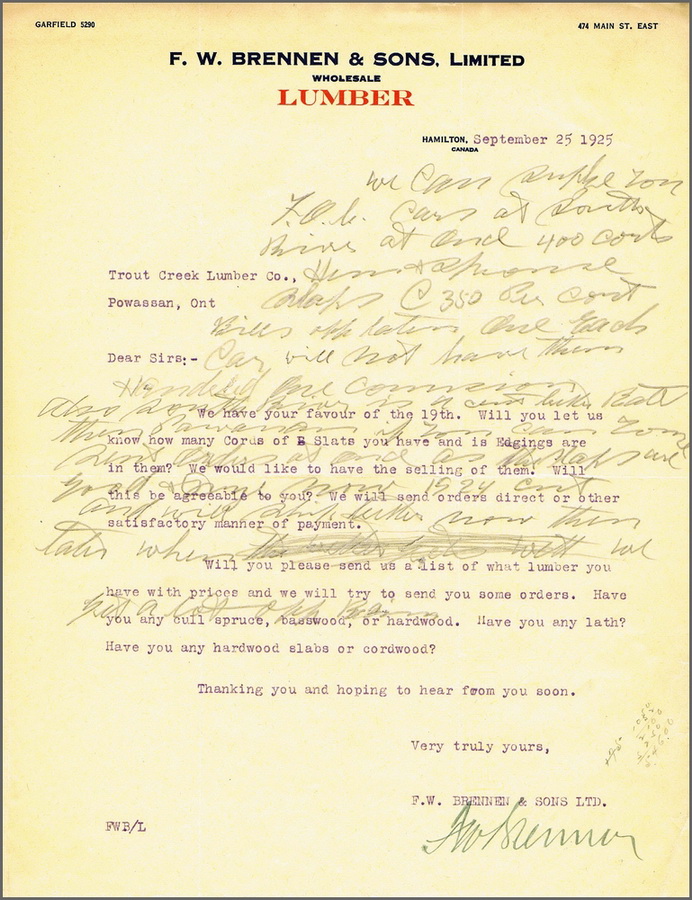 GARFIELD 5290
474 MAIN ST. EAST
F. W. BRENNEN & SONS, LIMITED
WHOLESALE
LUMBER
HAMILTON, September 25 1925
CANADA
we Can
F.O.b. Cars at South
River at Once 400 Cords
Trout Creek Lumber Co., Hem & Spruce
Powassan, Ont Slaps @ 350 Per Cord
Bills of lading One Each
Dear Sirs:- Car will not have them
Handeled One
Also South River is a better Rate
We have your favour of the 19th. Will you let us
then Powassan if you Can
know how many Cords of B Slats you have and is Edgings are
orders at once as the Slaps are
in them? We would like to have the selling of them. Will
Good & now 1924 cut
this be agreeable to you? We will send orders direct or other
and will now then
satisfactory manner of payment.
later when we
Will you please send us a list of what lumber you
have with prices and we will try to send you some orders. Have
get a lot of
you any cull spruce, basswood, or hardwood. Have you any lath?
Have you any hardwood slabs or cordwood?
Thanking you and hoping to hear foom you soon.
Very truly yours,
F.W. BRENNEN & SONS LTD.
FWB/L
FW Brennen